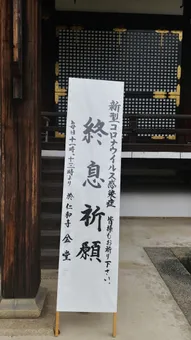 新型コロナウイルス感染症
皆様もお祈り下さい。
終息祈願
毎日十一時、十三時より
於 仁和寺 金堂